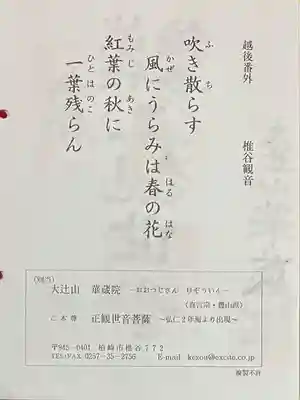 越後番外　椎谷観音
吹き散らす
風にうらみは春の花
紅葉の秋に
一葉残らん
ふ ち
かぜ はる はな
もみじ あき
ひとは のこ
(別当)
大辻山 華蔵院 ―おおつじさん けぞういん―
(真言宗・豊山派)
ご本尊 正観世音菩薩 ～弘仁2年海より出現～
〒945-0401 柏崎市椎谷772
TEL/FAX 0257-35-2756 E-mail kezou@excite.co.jp
複製不許